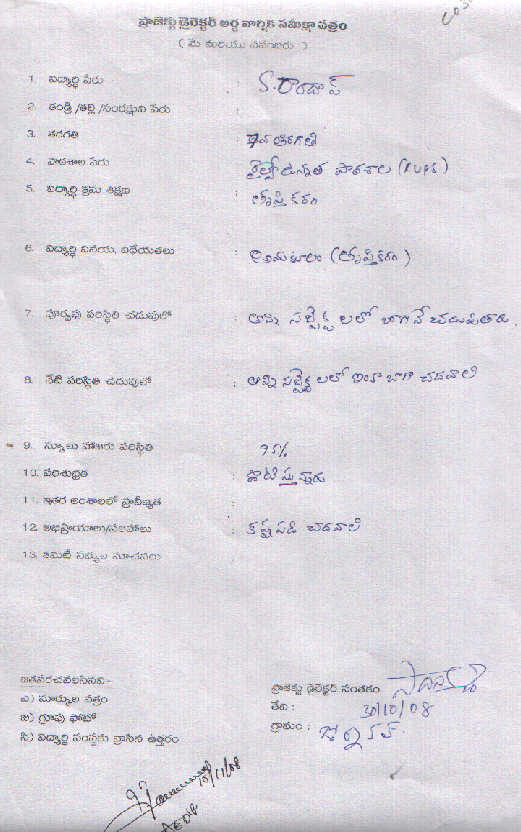 ప్రాజెక్టు డైరెక్టర్ అర్ధ వార్షిక సమీక్షా పత్రం
( మే మరియు నవంబరు )
1. విద్యార్థి పేరు : S.
2. తండ్రి /తల్లి /సంరక్షకుని పేరు :
3. తరగతి : 7వ తరగతి
4. పాఠశాల పేరు : ప్రాధమికోన్నత పాఠశాల (RUPS)
5. విద్యార్థి క్రమ శిక్షణ : తృప్తికరం
6. విద్యార్థి వినయ, విధేయతలు : (తృప్తికరం)
7. పూర్వపు పరిస్థితి చదువులో : అన్ని సబ్జెక్ట్ లలో బాగానే చదువుతారు.
8. నేటి పరిస్థితి చదువులో : అన్ని సబ్జెక్ట్ లలో ఇంకా బాగా చదవాలి
9. స్కూలు హాజరు పరిస్థితి : 95%
10. పరిశుభ్రత : పాటిస్తున్నారు
11. ఇతర అంశాలలో ప్రావీణ్యత :
12. అభిప్రాయాలు/సలహాలు : కష్టపడి చదవాలి
13. కమిటీ సభ్యుల సూచనలు
జతపరచవలసినవి:-
ఎ) మార్కుల పత్రం
బి) గ్రూపు ఫోటో
సి) విద్యార్థి సంస్థకు వ్రాసిన ఉత్తరం
ప్రాజెక్టు డైరెక్టర్ సంతకం
తేది : 30/10/08
గ్రామం :
10/11/08